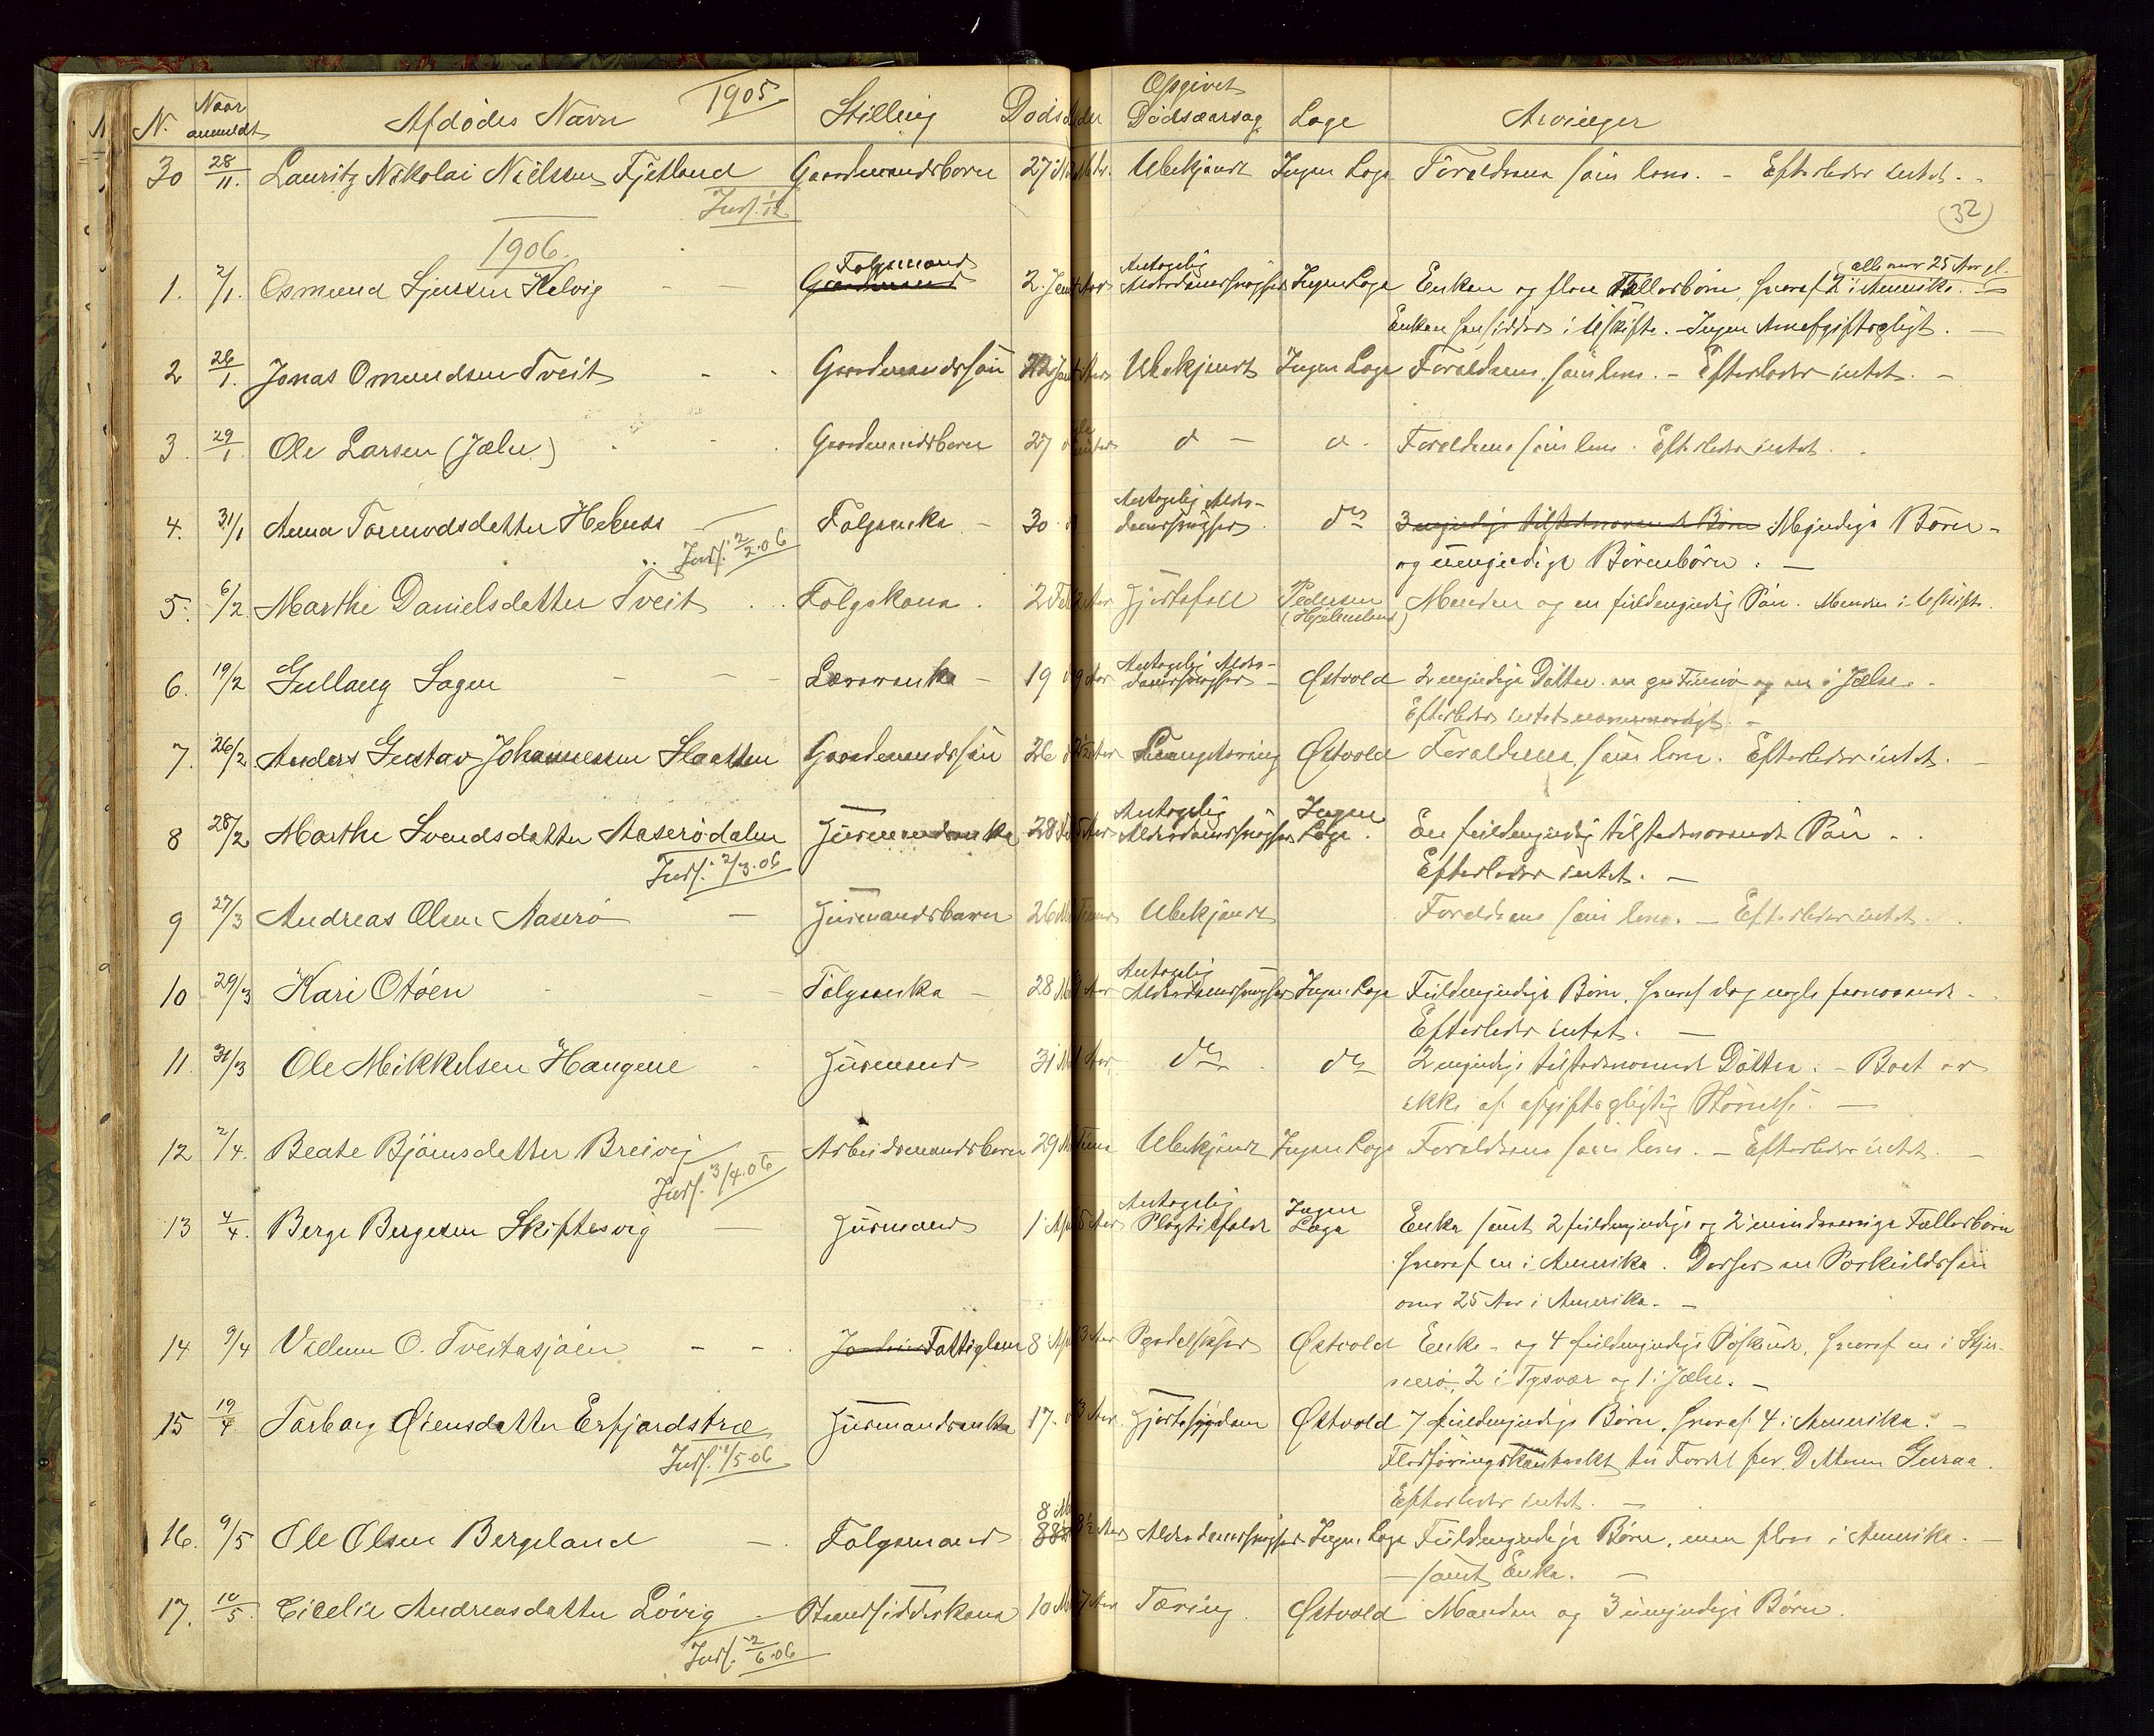 1905
N. Naar anmeldt Afdødes Navn Stilling Døds Alder Opgivet Dødsaarsag Læge Arvinger
30 28/11. Lauritz Nikolai Nielssen Fjetland Gaardmandsbarn 27 Ubekjendt Ingen Læge Forældrene som leve. - Efterlader intet. -
Inds. 1/12
32
1906.
1. 2/1. Osmund Sjursen Helvig - - Folgemand 2. Jan Antagelig Alderdomssvaghed Ingen Læge Enken og flere Fællesbørn, hvoraf 2 i Amerika. alle over 25 Aar gl.
Gaardmand
Enken hensidder i Uskifte. - Ingen Arveafgiftspligt. -
2 26/1. Jonas Omundsen Tveit - - Gaardmandssøn Ubekjendt Ingen Læge Forældrene som leve. - Efterlader intet. -
3. 29/1 Ole Larsen (Jælse) - - Gaardmandsbarn 27 d - d - Forældrene som leve. Efterlader intet.
4. 31/1 Anna Tormodsdatter Hebnes - Folgeenke - 30 Antagelig Alder-
domssvaghed do 3 myndige tilstedeværende Børn Myndige Børn -
Inds. 2/2.06
og umyndige Børnebørn. -
5. 6/2 Marthe Danielsdatter Tveit Folgekone. 2 Feb Hjertefeil Pedersen (Hjelmeland) Manden og en fuldmyndig Søn. Manden i Uskifte.
6. 19/2 Gullaug Sagen - - - Lærerenke - 19 9 Aar Antagelig Alder-
domssvaghed - Østvold 2 myndige Døtter en paa Finnø og en i Jælse. -
Efterlader intet nævneværdigt. -
7. 26/2 Anders Gustav Johannessen Slaatten Gaardmandssøn 26 Lungetæring Østvold Forældrene som leve. Efterlader intet. -
8 28/2 Marthe Svendsdatter Aaserødalen Husmandsenke 28 Feb Antagelig Alderdomssvaghed Ingen Læge. En fuldmyndig tilstedeværende Søn - .
Inds. 2/3.06
Efterlader intet. -
9 27/3 Andreas Olsen Aaserø - Husmandsbarn 26 Ubekjendt Forældrene som leve. - Efterlader intet.
10 29/3 Kari Otøen - - - Folgeenke - 28 Antagelig Alderdomssvaghed Ingen Læge Fuldmyndige Børn, hvoraf dog nogle fraværende. -
Efterlader intet. -
11. 31/3 Ole Mikkelsen Haugene Husmand 31 do do 2 myndige tilstedeværende Døttre. - Boet er
ikke af afgiftspligtig Størrelse. -
12 2/4. Beate Bjørnsdatter Breivig Arbeidsmandsbarn 29 Ubekjendt Ingen Læge Forældrene som leve. - Efterlader intet. -
Inds. 3/4.06
13 4/4. Berge Bergesen Skiftesvig - Husmand 1 Apr Antagelig Slagtilfælde Ingen Læge Enke samt 2 fuldmyndige og 2 mindreaarige Fællesbørn
hvoraf en i Amerika. Desuden en Særkuldssøn
over 25 Aar i Amerika. -
14 9/4 Villum O. Tveitasjøen - - Fattiglem 8 Apr 3 Aar Spedalskhed Østvold Enke - og 4 fuldmyndige Søskende, hvoraf en i Sjer-
nerø, 2 i Tysvær og 1 i Jælse. -
15 19/4 Torborg Øiensdatter Erfjordstræ Husmandsenke 17. 3 Aar. Hjertesygdom Østvold 7 fuldmyndige Børn, hvoraf 4 i Amerika. -
Inds. 1/5 06
Flodføringskontrakt til Fordel for Datteren Guraa.
Efterlader intet. -
16. 9/5 Ole Olsen Bergeland - . Folgemand 8 Mai Alderdomssvaghed Ingen Læge Fuldmyndige Børn, men flere i Amerika. -
- samt Enke. -
17. 10/5. Cicelie Andreasdatter Lovig . Strandsidderkone 10 Tæring Østvold Manden og 3 umyndige Børn.
Inds. 2/6.06